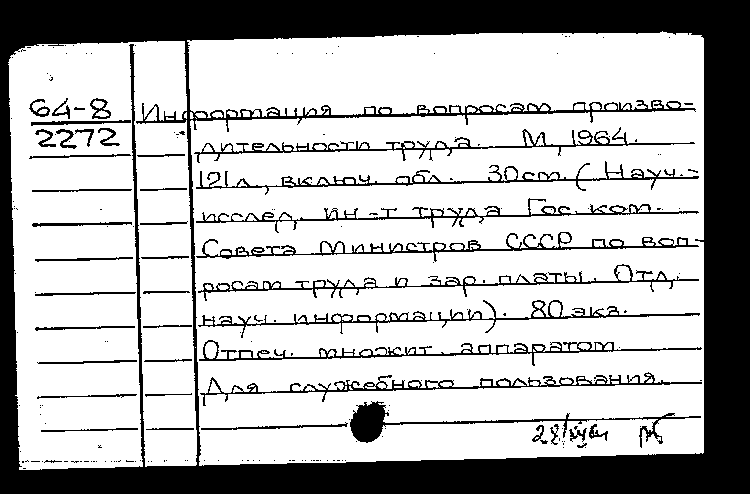 64-8 Информация по вопросам произво-
2272 дительности труда. М., 1964.
121 л., включ. обл. 30 cm. (Науч.-
исслед. ин-т труда Гос. ком.
Совета Министров СССР по воп-
росам труда и зар. платы. Отд.
науч. информации). 80 экз.
Отпеч. множит. аппаратом
Для служебного пользования.